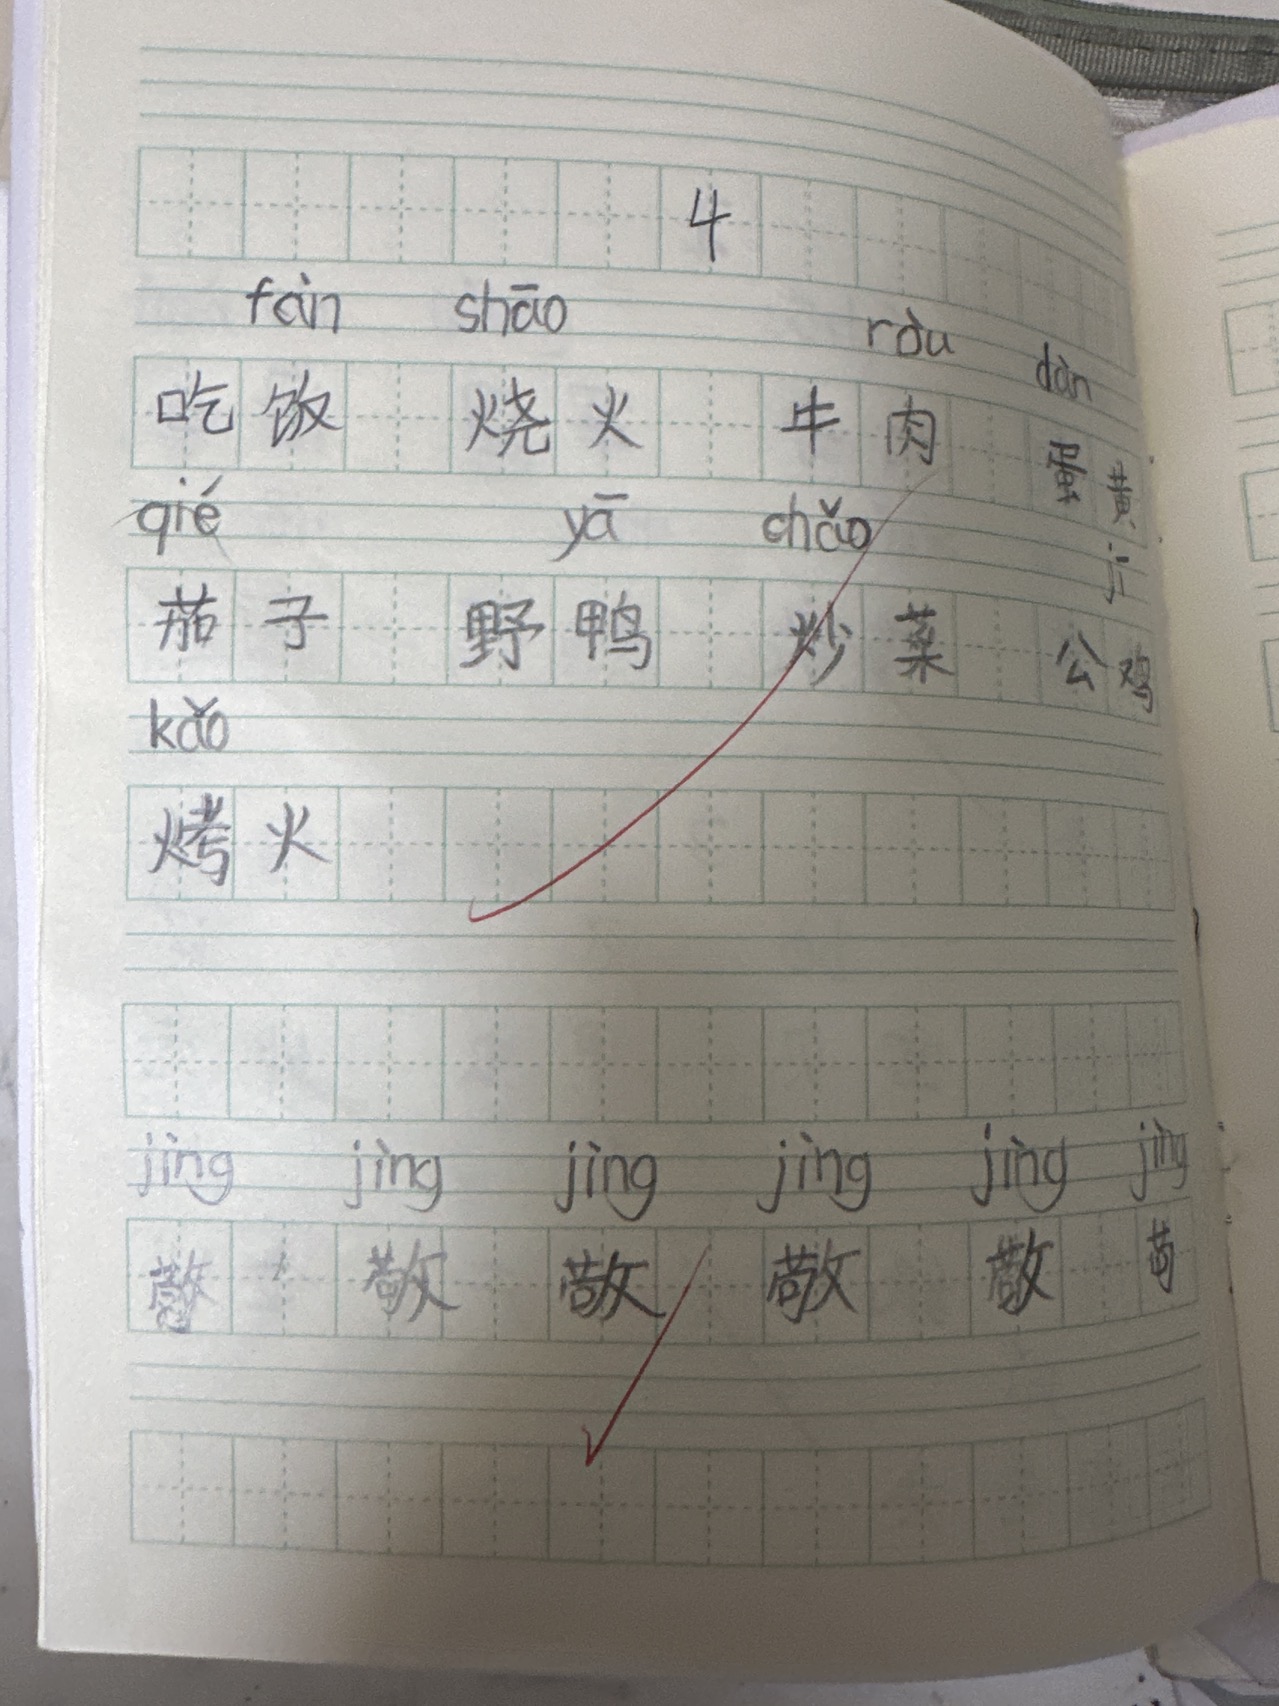 4
fàn shāo ròu dàn
吃饭 烧火 牛肉 蛋黄
qié yā chǎo jī
茄子 野鸭 炒菜 公鸡
kǎo
烤火
jìng jìng jìng jìng jìng jìng
敬 敬 敬 敬 敬